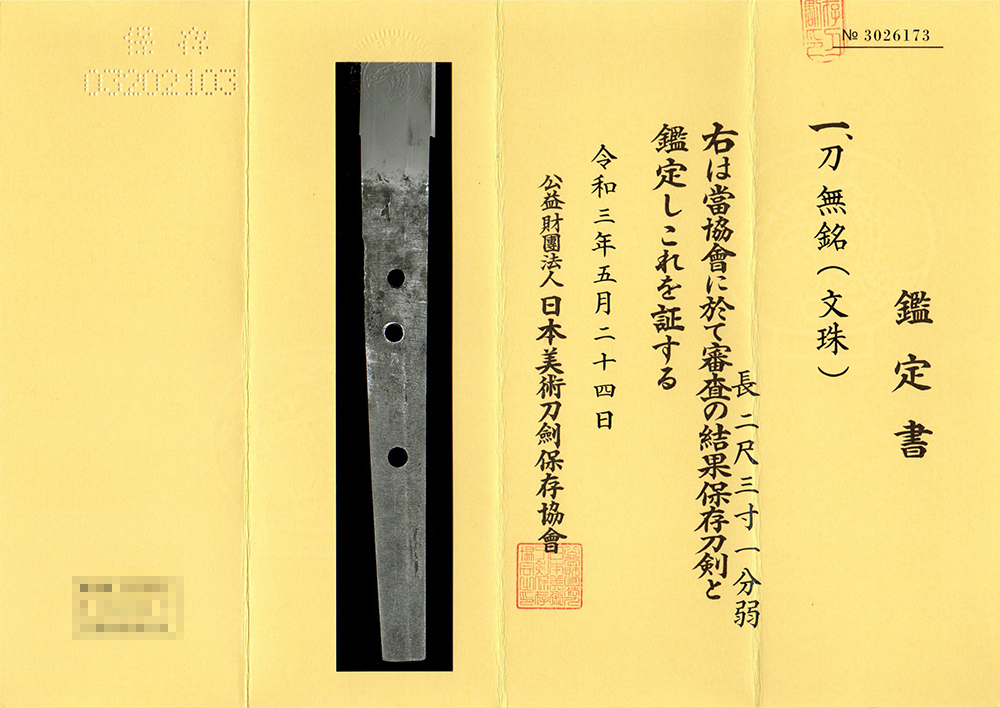 № 3026173
鑑定書
一、刀 無銘(文珠)
長 二尺三寸一分弱
右は當協會に於て審査の結果保存刀剣と
鑑定しこれを証する
令和三年五月二十四日
公益財團法人 日本美術刀劍保存協會
保存
03202103